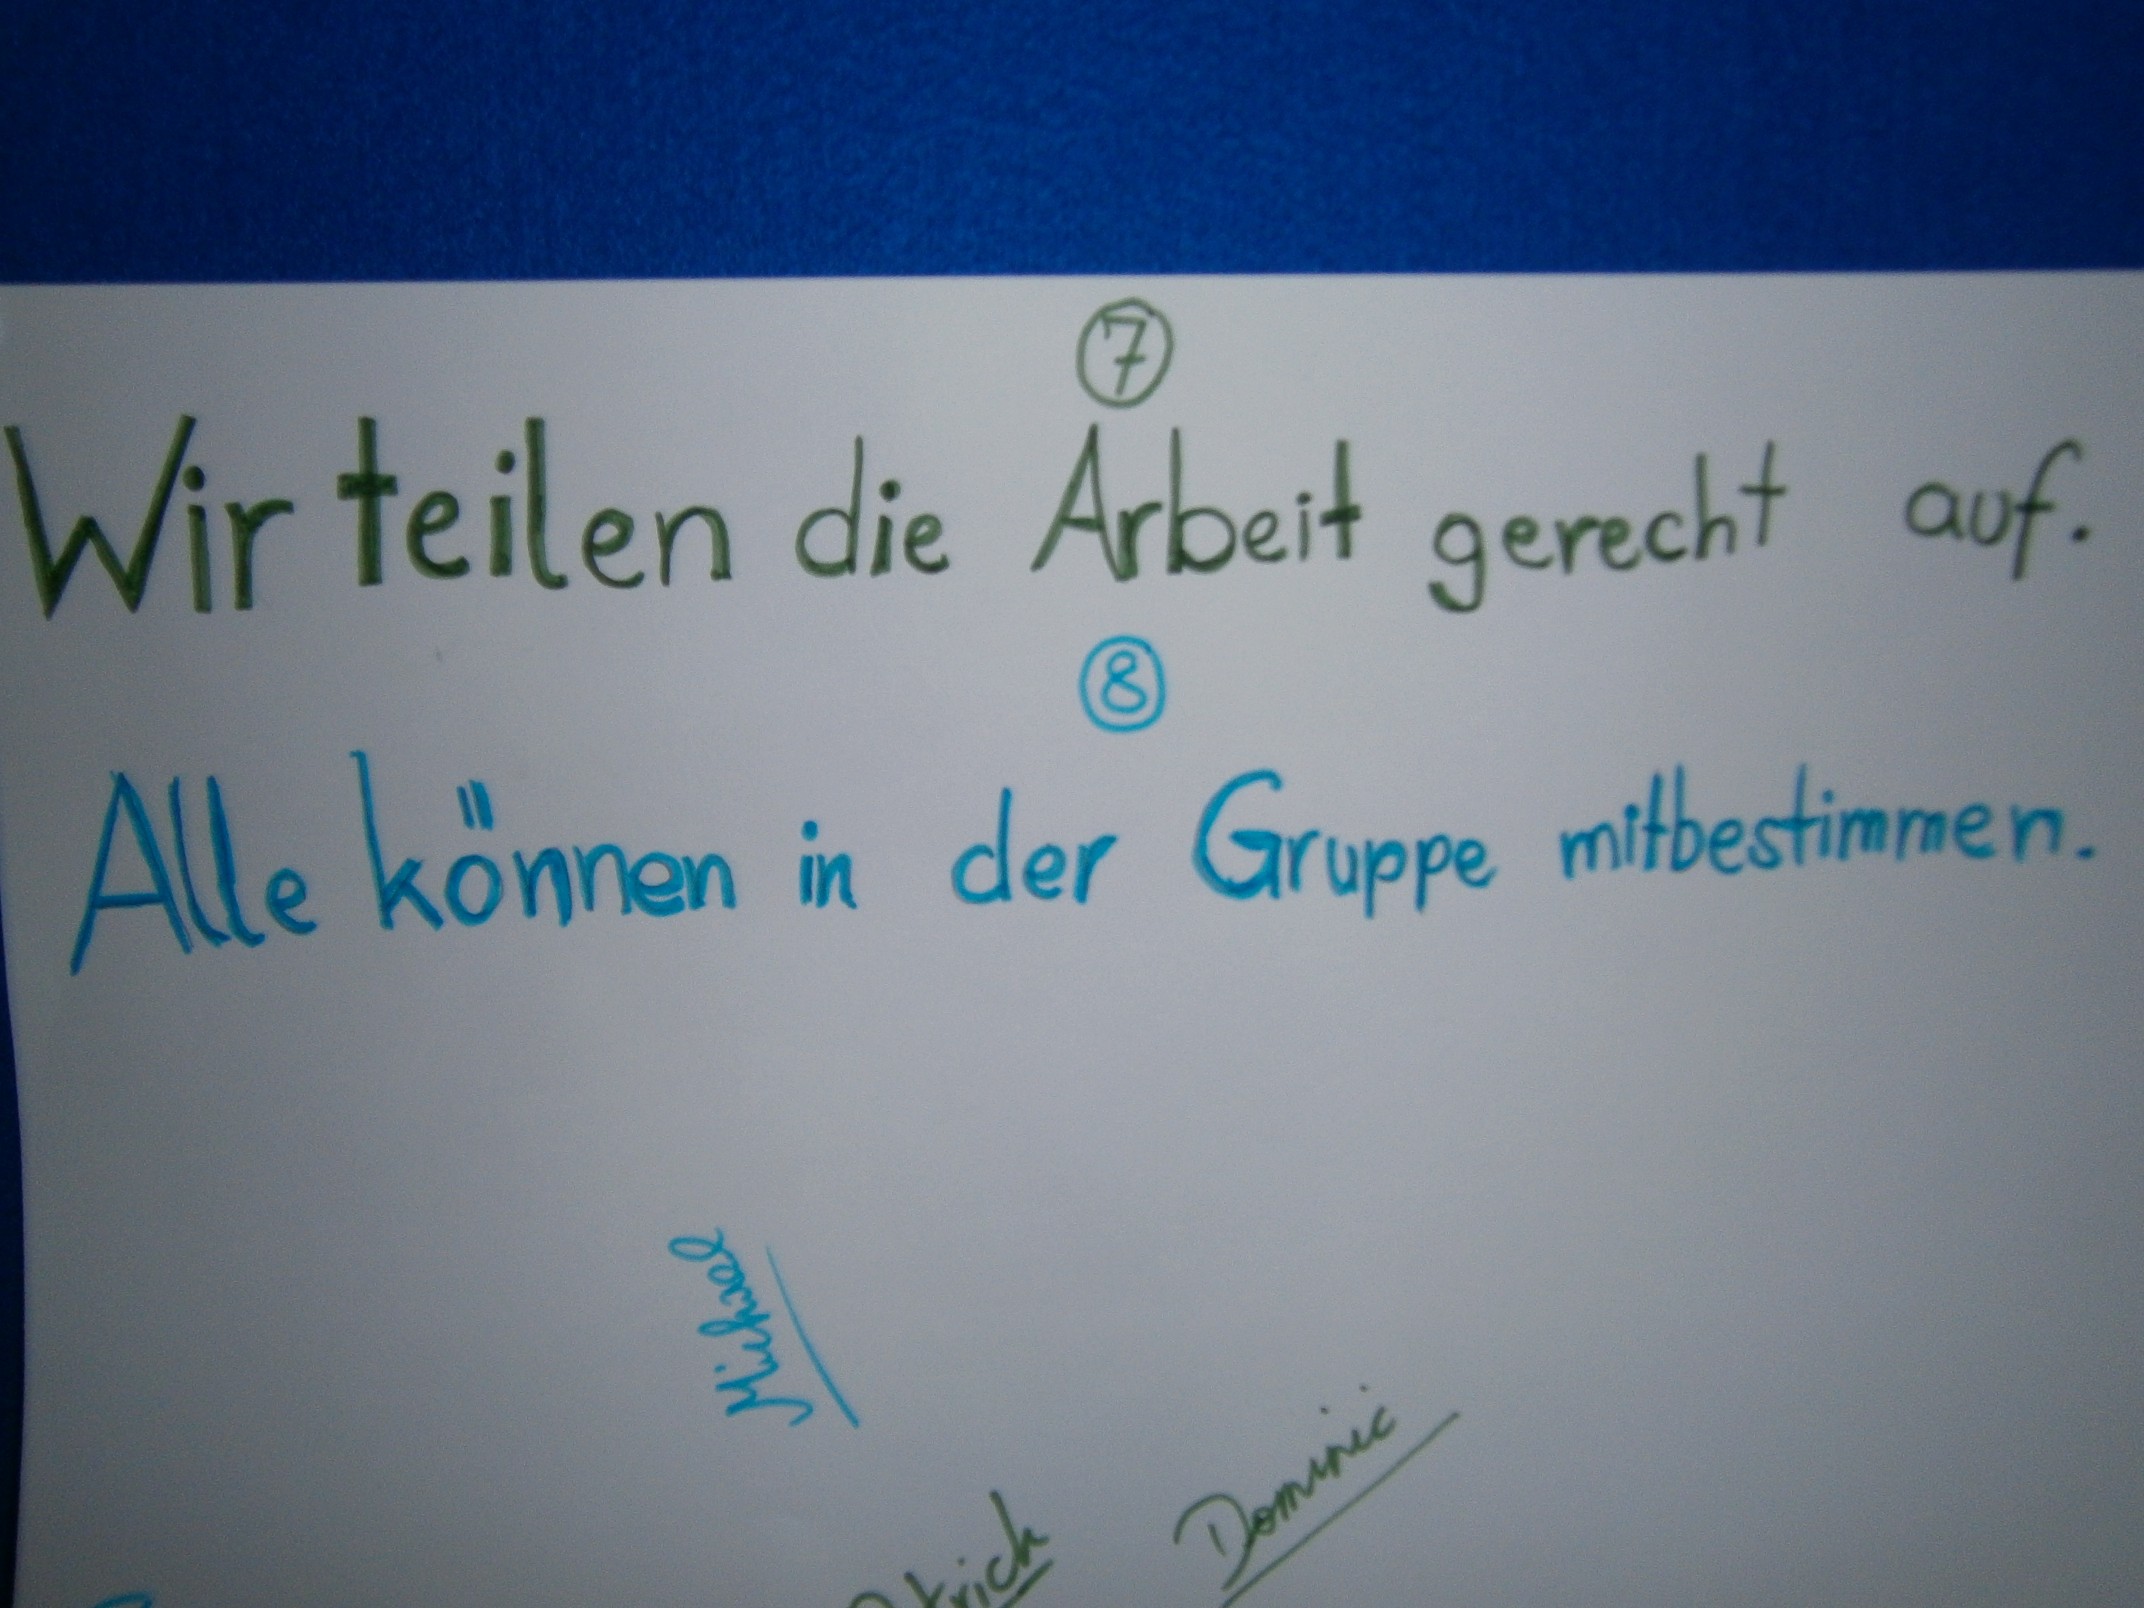 7
Wir teilen die Arbeit gerecht auf.
8
Alle können in der Gruppe mitbestimmen.
Michael
Dominic